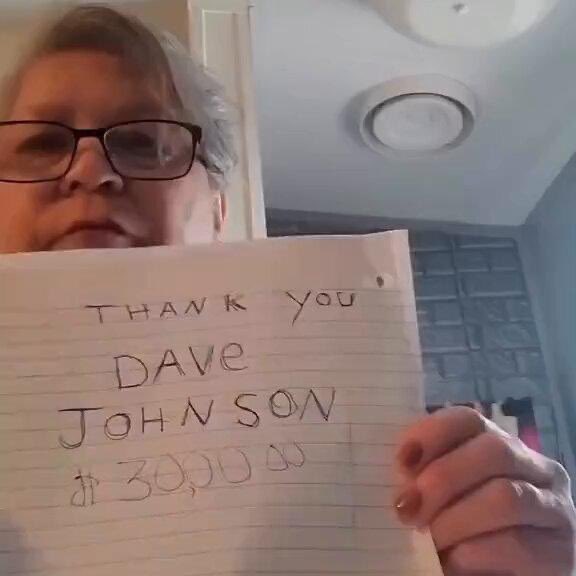 THANK YOU
DAVe
JOHNSON
$ 30,00 00